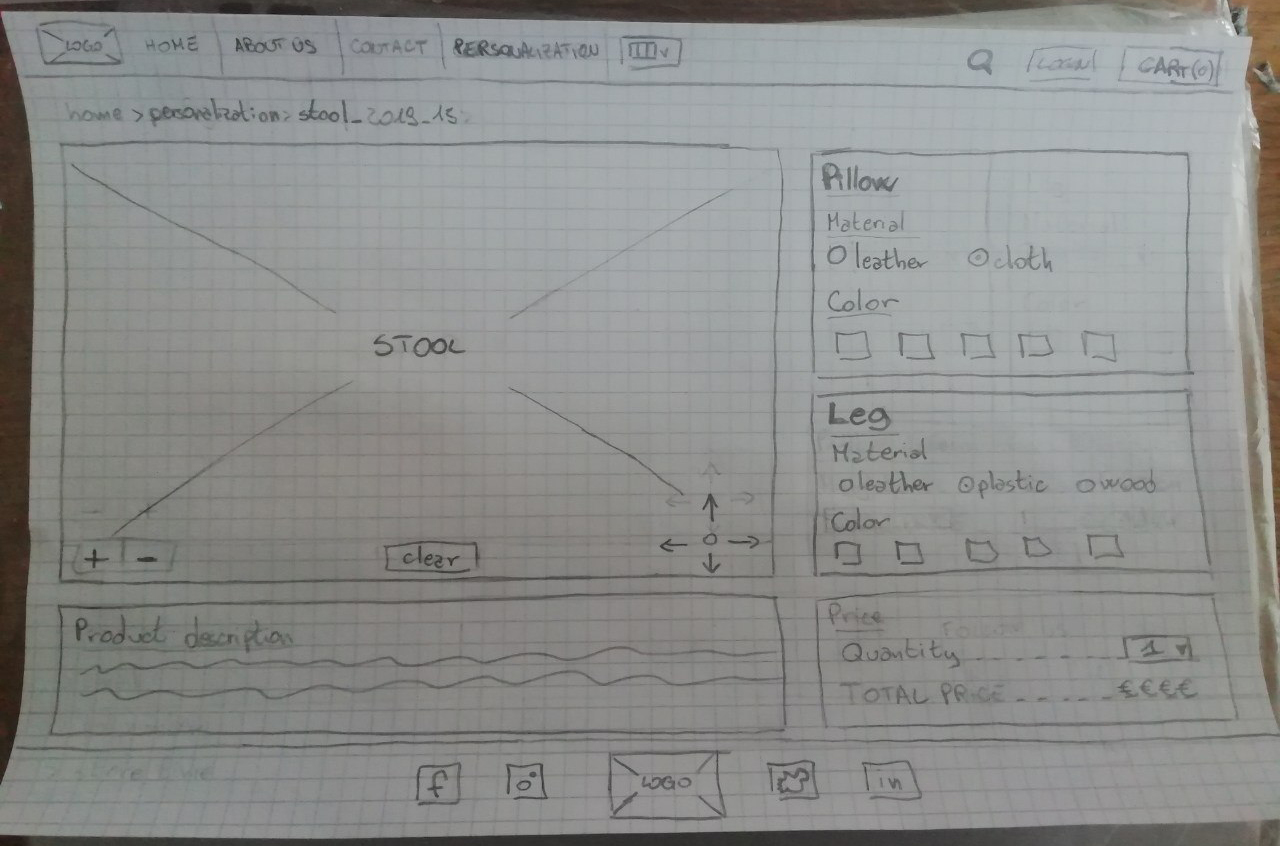 LOGO HOME ABOUT US CONTACT PERSONALIZATION LOGIN CART(0)
home > personalization> stool_2019_15
STOOL
+ -
clear
Pillow
Material
leather cloth
Color
Leg
Material
leather plastic wood
Color
Product description
Price
Quantity 1
TOTAL PRICE €€€€
f LOGO in